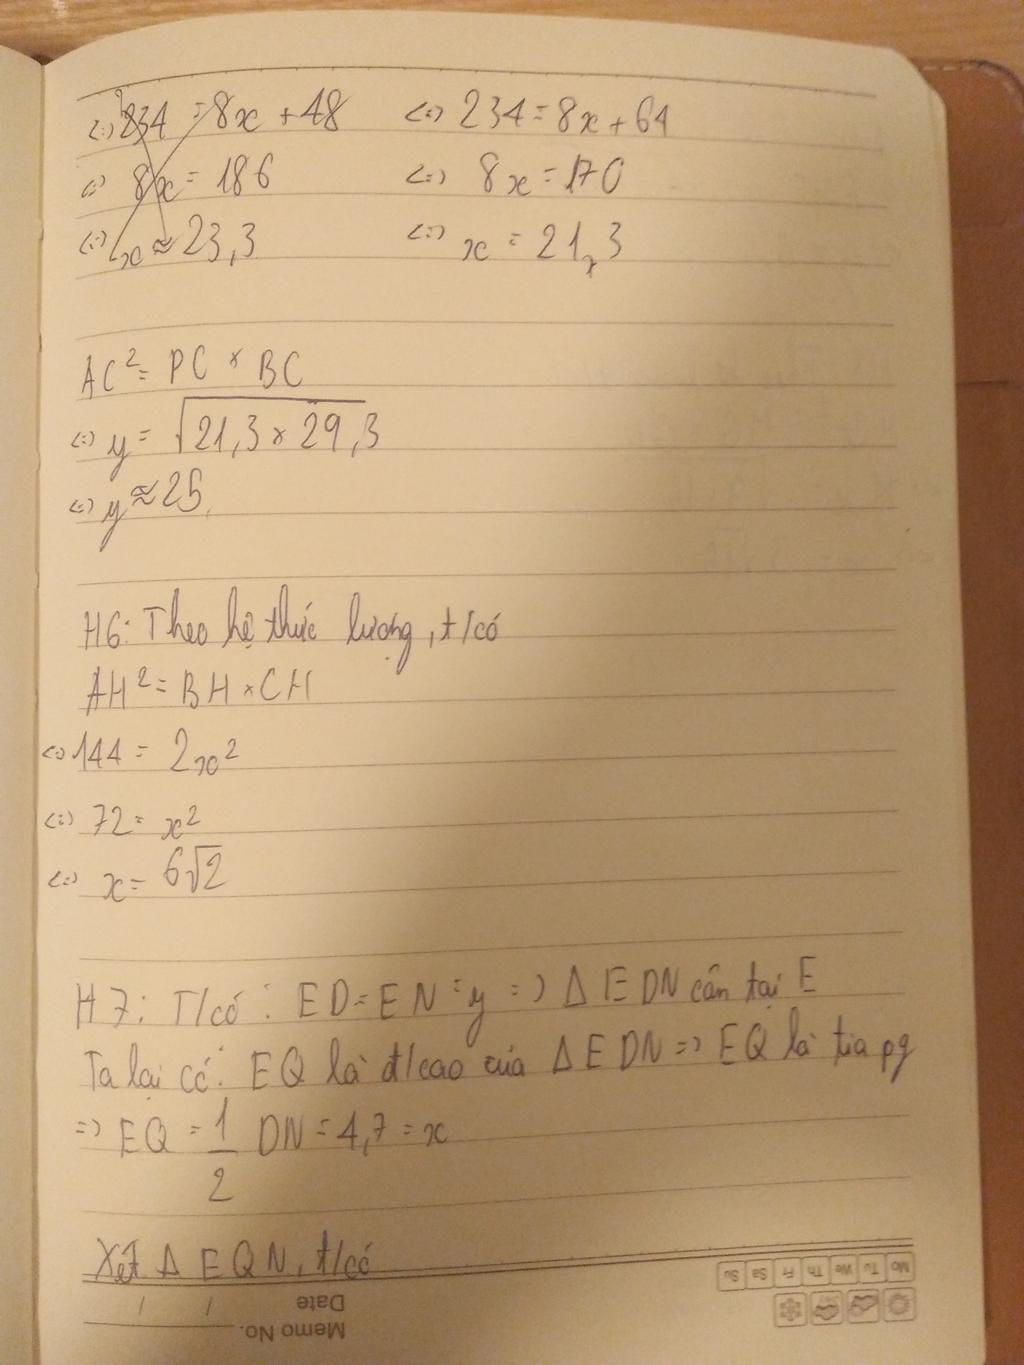 <=> 234 = 8x + 48
<=> 8x = 186
<=> x ≈ 23,3
<=> 234 = 8x + 64
<=> 8x = 170
<=> x = 21,3
AC² = PC × BC
<=> y = √21,3 × 29,3
<=> y ≈ 25
H6: Theo hệ thức lượng, t/có
AH² = BH × CH
<=> 144 = 2x²
<=> 72 = x²
<=> x = 6√2
H7: T/có: ED = EN = y => Δ EDN cân tại E
Ta lại có: EQ là đ/cao của Δ EDN => EQ là tia pg
=> EQ = 1/2 DN = 4,7 = x
Xét Δ EQN, t/có
Memo No.
Date / /
Mo Tu We Th Fr Sa Su